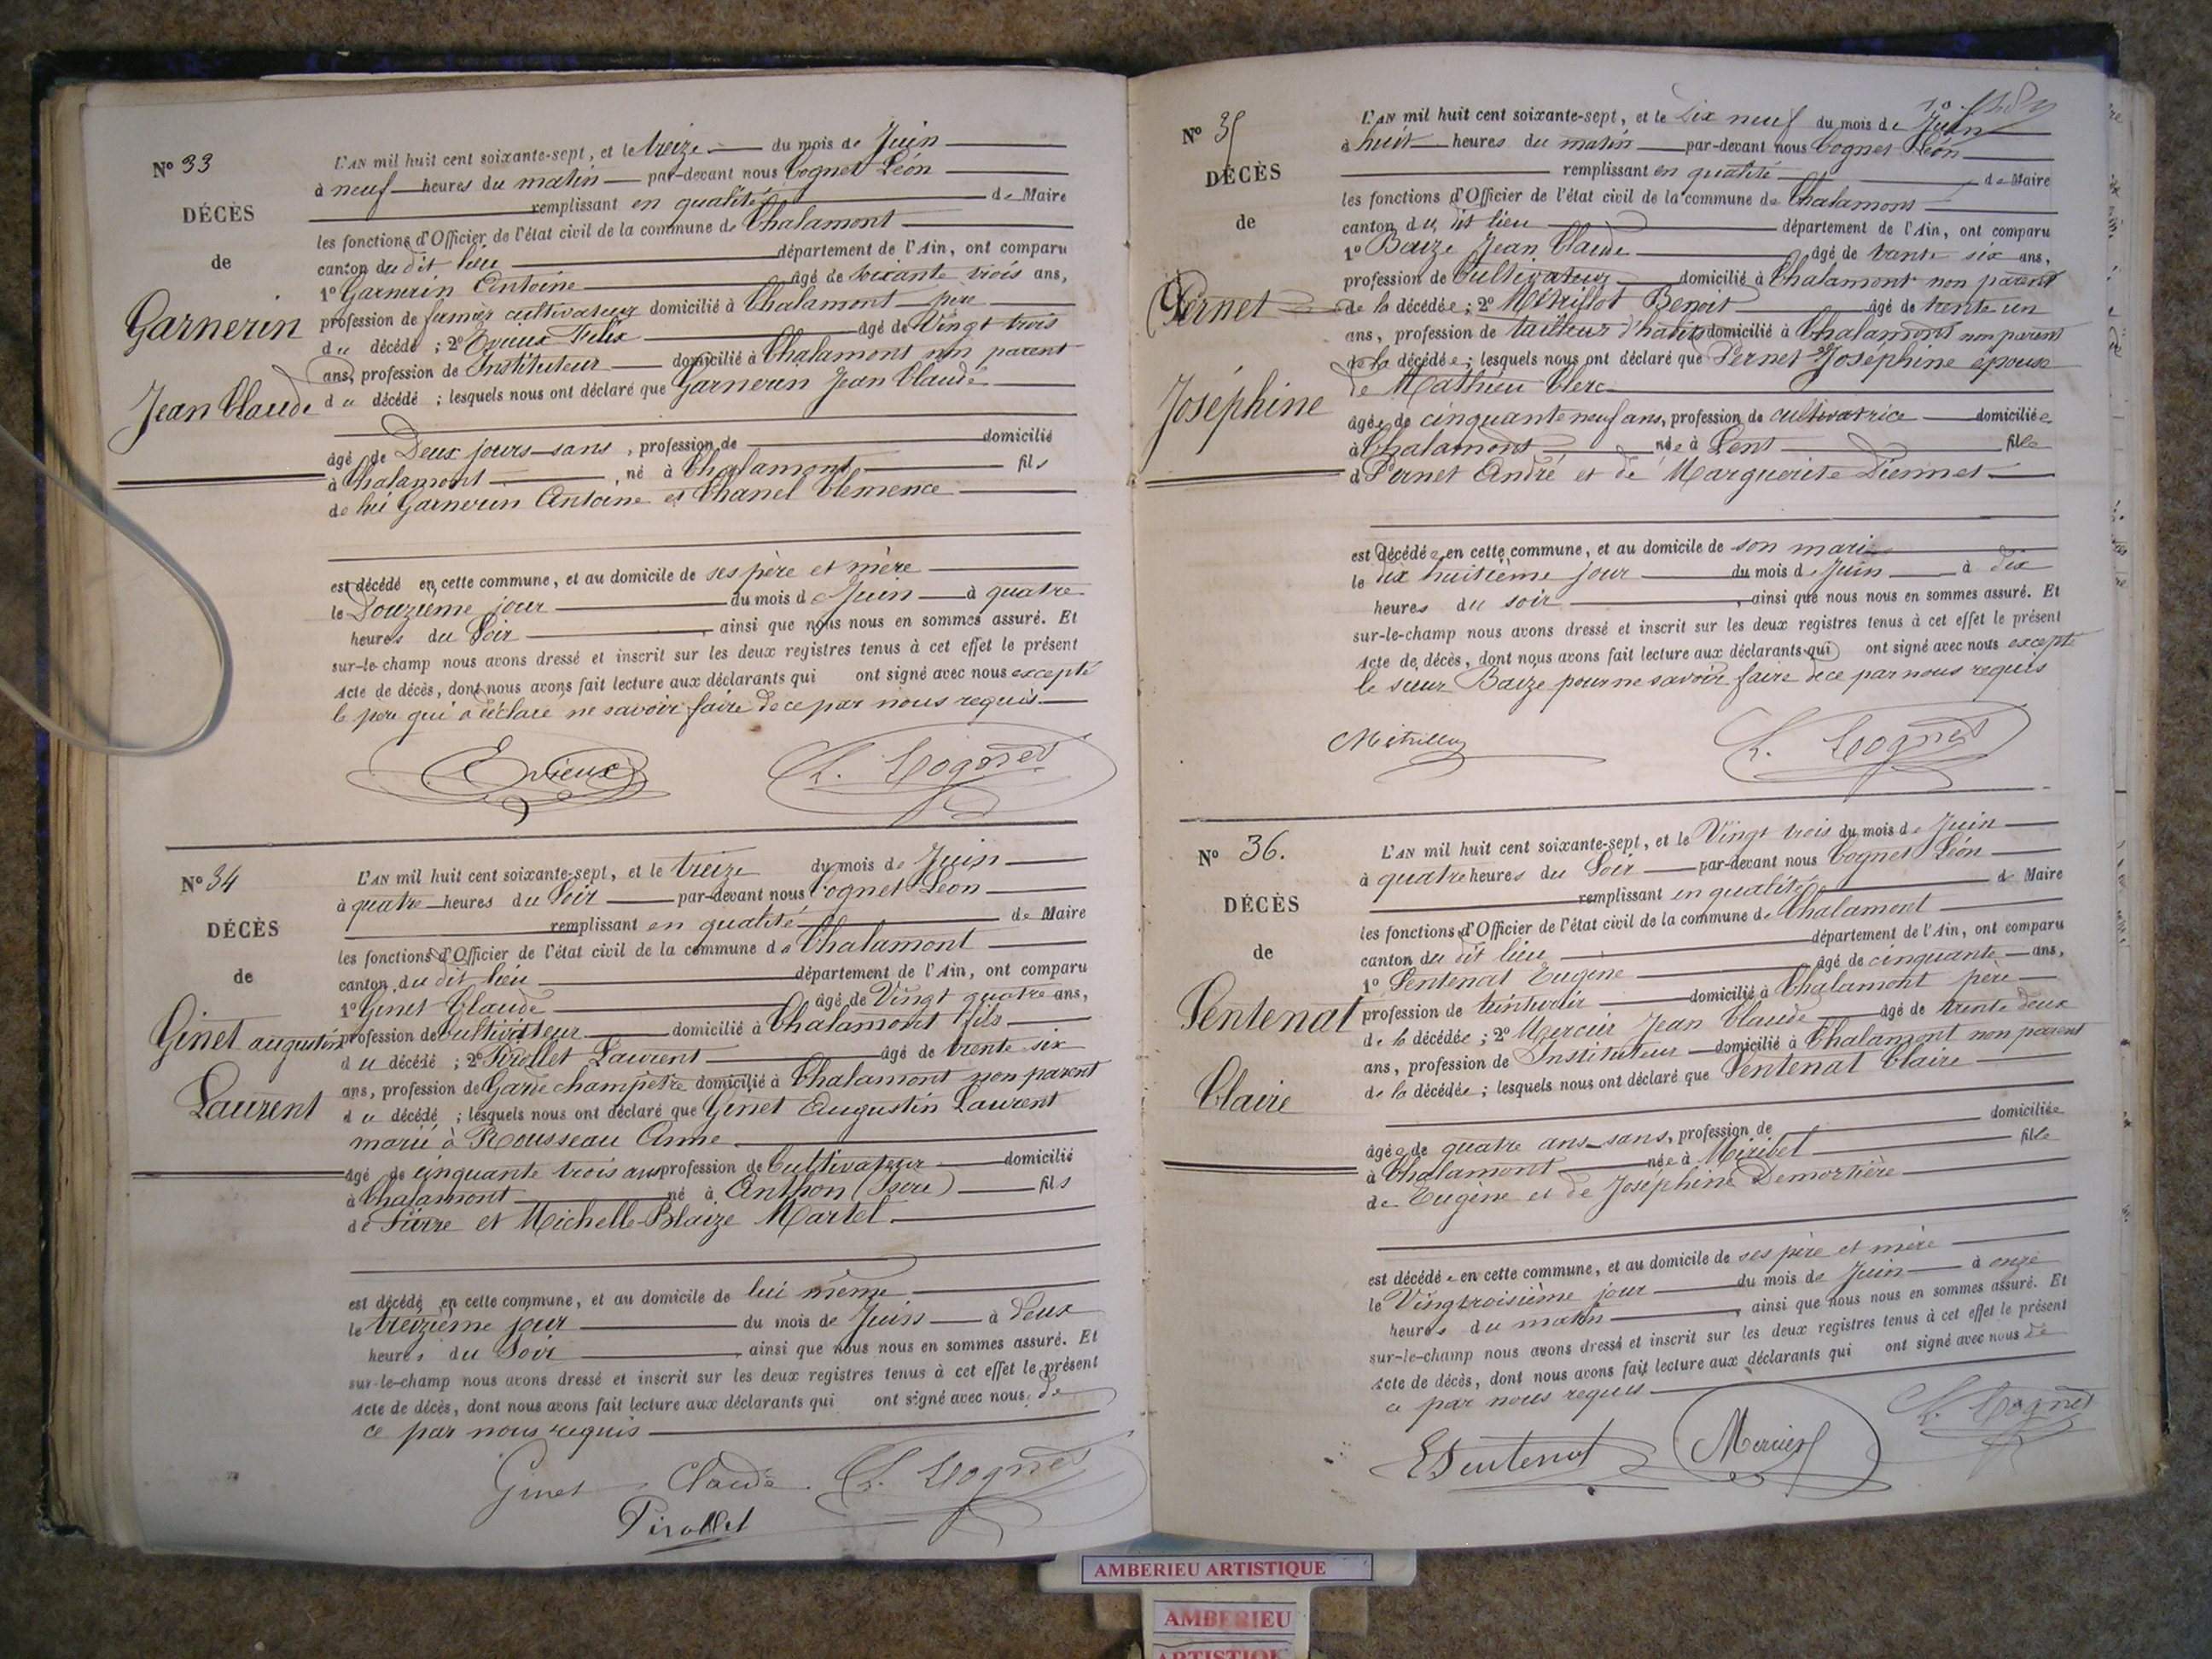 N° 33
DÉCÈS
de
Garnerin
Jean Claude
L'AN mil huit cent soixante-sept, et le treize du mois de Juin
à neuf heures du matin par-devant nous Cognet Léon
remplissant en qualité de Maire
les fonctions d'Officier de l'état civil de la commune de Chalamont
canton du dit lieu département de l'Ain, ont comparu
1° Garnerin Antoine âgé de soixante trois ans,
profession de fumiés cultivateur domicilié à Chalamont père
du décédé ; 2° Evieux Felix âgé de Vingt trois
ans, profession de Instituteur domicilié à Chalamont non parent
du décédé ; lesquels nous ont déclaré que Garnerin Jean Claude
âgé de Deux jours sans , profession de domicilié
à Chalamont , né à Chalamont fils
de lui Garnerin Antoine et Chanel Clemence
est décédé en cette commune, et au domicile de ses père et mère
le Douzième jour du mois de Juin à quatre
heures du Soir , ainsi que nous nous en sommes assuré. Et
sur-le-champ nous avons dressé et inscrit sur les deux registres tenus à cet effet le présent
Acte de décès, dont nous avons fait lecture aux déclarants qui ont signé avec nous excepté
le père qui a déclaré ne savoir faire de ce par nous requis.
Evieux L. Cognet
N° 34
DÉCÈS
de
Ginet augustin
Laurent
L'AN mil huit cent soixante-sept, et le treize du mois de Juin
à quatre heures du Soir par-devant nous Cognet Leon
remplissant en qualité de Maire
les fonctions d'Officier de l'état civil de la commune de Chalamont
canton du dit lieu département de l'Ain, ont comparu
1° Ginet Claude âgé de Vingt quatre ans,
profession de Cultivateur domicilié à Chalamont fils
du décédé ; 2° Pirollet Laurent âgé de trente six
ans, profession de Garde champêtre domicilié à Chalamont non parent
du décédé ; lesquels nous ont déclaré que Ginet Augustin Laurent
marié à Rousseau Anne
âgé de cinquante trois ans profession de Cultivateur domicilié
à Chalamont né à Anthon (Isère) fils
de Pierre et Michelle Blaize Martel
est décédé en cette commune, et au domicile de lui même
le treizième jour du mois de Juin à deux
heures du Soir , ainsi que nous nous en sommes assuré. Et
sur-le-champ nous avons dressé et inscrit sur les deux registres tenus à cet effet le présent
Acte de décès, dont nous avons fait lecture aux déclarants qui ont signé avec nous de
ce par nous requis
Ginet Claude L. Cognet
Pirollet
N° 35
DÉCÈS
de
Pernet
Joséphine
L'AN mil huit cent soixante-sept, et le dix neuf du mois de Juin
à huit heures du matin par-devant nous Cognet Léon
remplissant en qualité de Maire
les fonctions d'Officier de l'état civil de la commune de Chalamont
canton du dit lieu département de l'Ain, ont comparu
1° Baize Jean Claude âgé de trente six ans,
profession de Cultivateur domicilié à Chalamont non parent
de la décédée ; 2° Métrillot Benoit âgé de trente un
ans, profession de tailleur d'habits domicilié à Chalamont non parent
de la décédée ; lesquels nous ont déclaré que Pernet Joséphine épouse
de Mathieu Clerc
âgée de cinquante neuf ans, profession de cultivatrice domiciliée
à Chalamont née à Lent fille
d Pernet André et de Marguerite Diennet
est décédée en cette commune, et au domicile de son mari
le dix huitième jour du mois de Juin à dix
heures du soir , ainsi que nous nous en sommes assuré. Et
sur-le-champ nous avons dressé et inscrit sur les deux registres tenus à cet effet le présent
Acte de décès, dont nous avons fait lecture aux déclarants qui ont signé avec nous excepté
le sieur Baize pour ne savoir faire de ce par nous requis
L. Cognet
N° 36.
DÉCÈS
de
Sentenat
Claire
L'AN mil huit cent soixante-sept, et le Vingt trois du mois de Juin
à quatre heures du Soir par-devant nous Cognet Léon
remplissant en qualité de Maire
les fonctions d'Officier de l'état civil de la commune de Chalamont
canton du dit lieu département de l'Ain, ont comparu
1° Sentenat Eugène âgé de cinquante ans,
profession de teinturier domicilié à Chalamont père
de la décédée ; 2° Mercier Jean Claude âgé de trente deux
ans, profession de Instituteur domicilié à Chalamont non parent
de la décédée ; lesquels nous ont déclaré que Sentenat Claire
âgée de quatre ans sans, profession de domiciliée
à Chalamont née à Miribel fille
de Eugène et de Joséphine Demortière
est décédée en cette commune, et au domicile de ses père et mère
le Vingtroisième jour du mois de Juin à onze
heures du matin , ainsi que nous nous en sommes assuré. Et
sur-le-champ nous avons dressé et inscrit sur les deux registres tenus à cet effet le présent
Acte de décès, dont nous avons fait lecture aux déclarants qui ont signé avec nous de
ce par nous requis
E Sentenat Mercier L. Cognet
AMBERIEU ARTISTIQUE
AMBERIEU
ARTISTIQUE